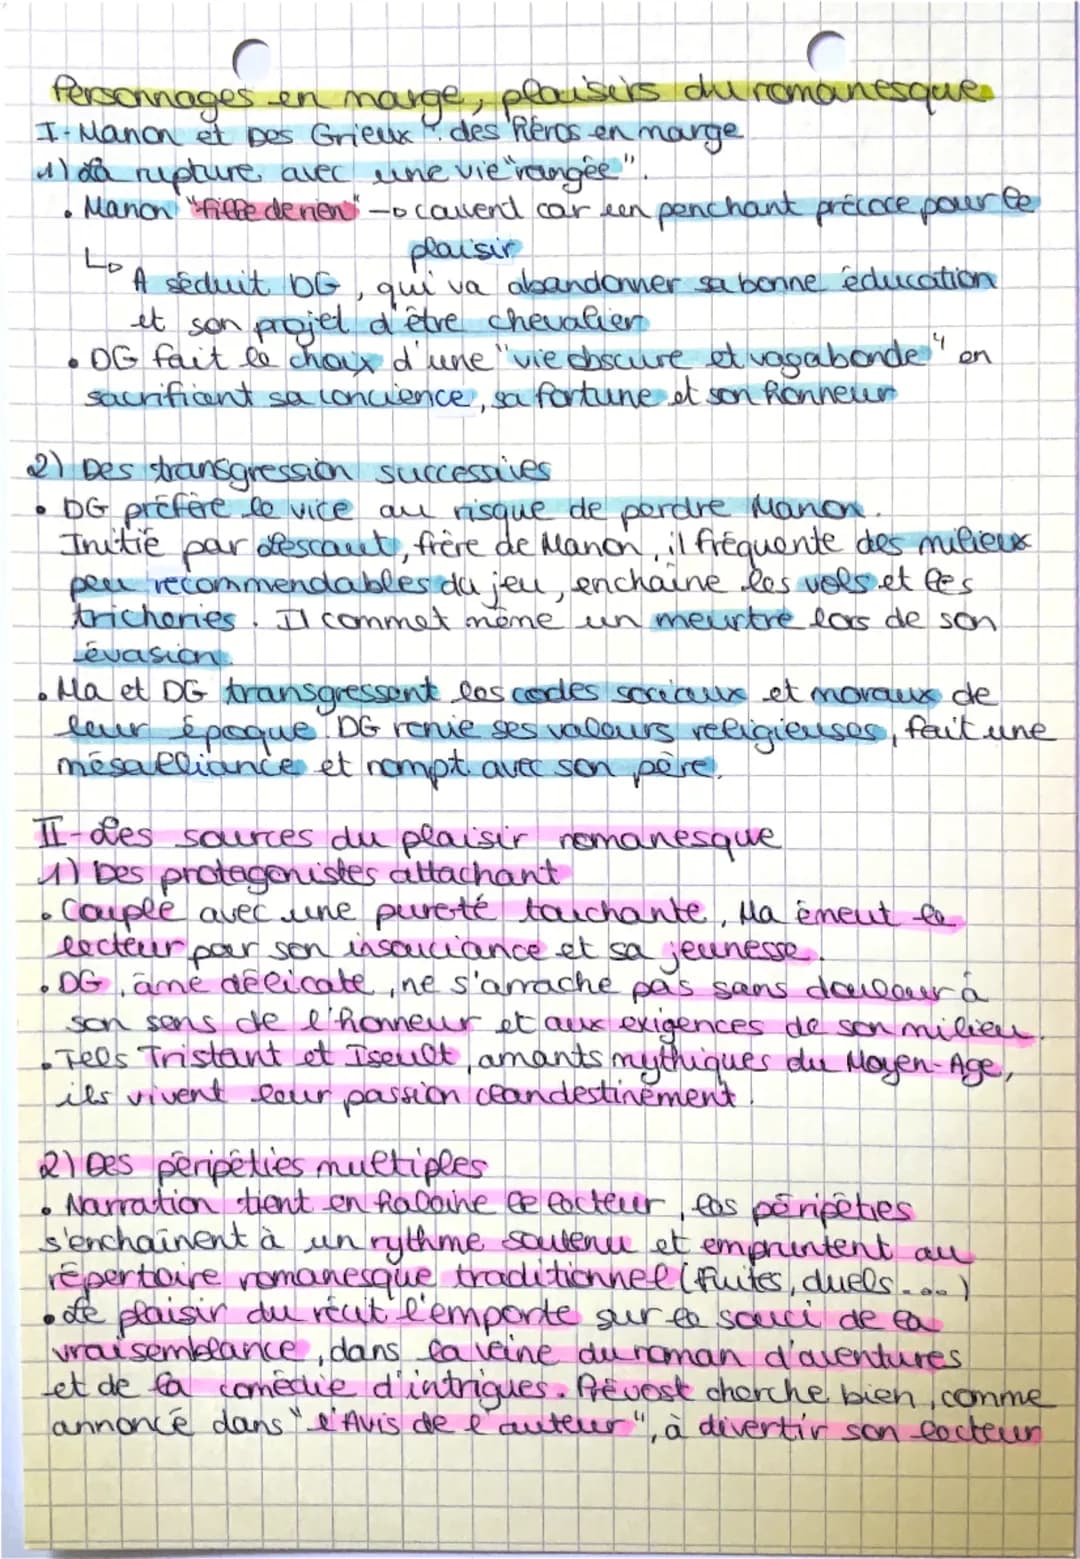 Personnages en marge, plaisirs du romanesque
I- Manon et Des Grieux : des héros en marge
1) La rupture avec une vie "rangée".
• Manon "fille de rien" → couvend car een penchant précoce pour le
plaisir
↳ A séduit DG, qui va abandonner sa bonne éducation
et son projet d'être chevalier
• DG fait le choix d'une "vie obscure et vagabonde" en
sacrifient sa concience, sa fortune et son honneur
2) Des transgression successives
• DG préfère le vice au risque de perdre Manon.
Initié par Lescaut, frère de Manon, il fréquente des milieux
peu recommendables du jeu, enchaîne les vols et les
tricheries. Il commet même un meurtre lors de son
évasion.
• Ma et DG transgressent les codes sociaux et moraux de
leur époque. DG renie ses valeurs religieuses, fait une
mésalliance et rompt avec son père.
II- Les sources du plaisir romanesque
1) Des protagonistes attachant
• Couple avec une pureté touchante, Ma émeut le
lecteur par son insouciance et sa jeunesse.
• DG, âme délicate, ne s'arrache pas sans douleur à
son sens de l'honneur et aux exigences de son milieu.
• Tels Tristant et Iseult, amants mythiques du Moyen-Age,
ils vivent leur passion clandestinement.
2) Des péripéties multiples
• Narration tient en haleine le lecteur, les péripéties
s'enchaînent à un rythme soutenu et empruntent au
répertoire romanesque traditionnel (fuites, duels....)
• Le plaisir du récit l'emporte sur le souci de la
vraisemblance, dans la veine du roman d'aventures
et de la comédie d'intrigues. Prévost cherche bien, comme
annoncé dans "l'Avis de l'auteur", à divertir son lecteur